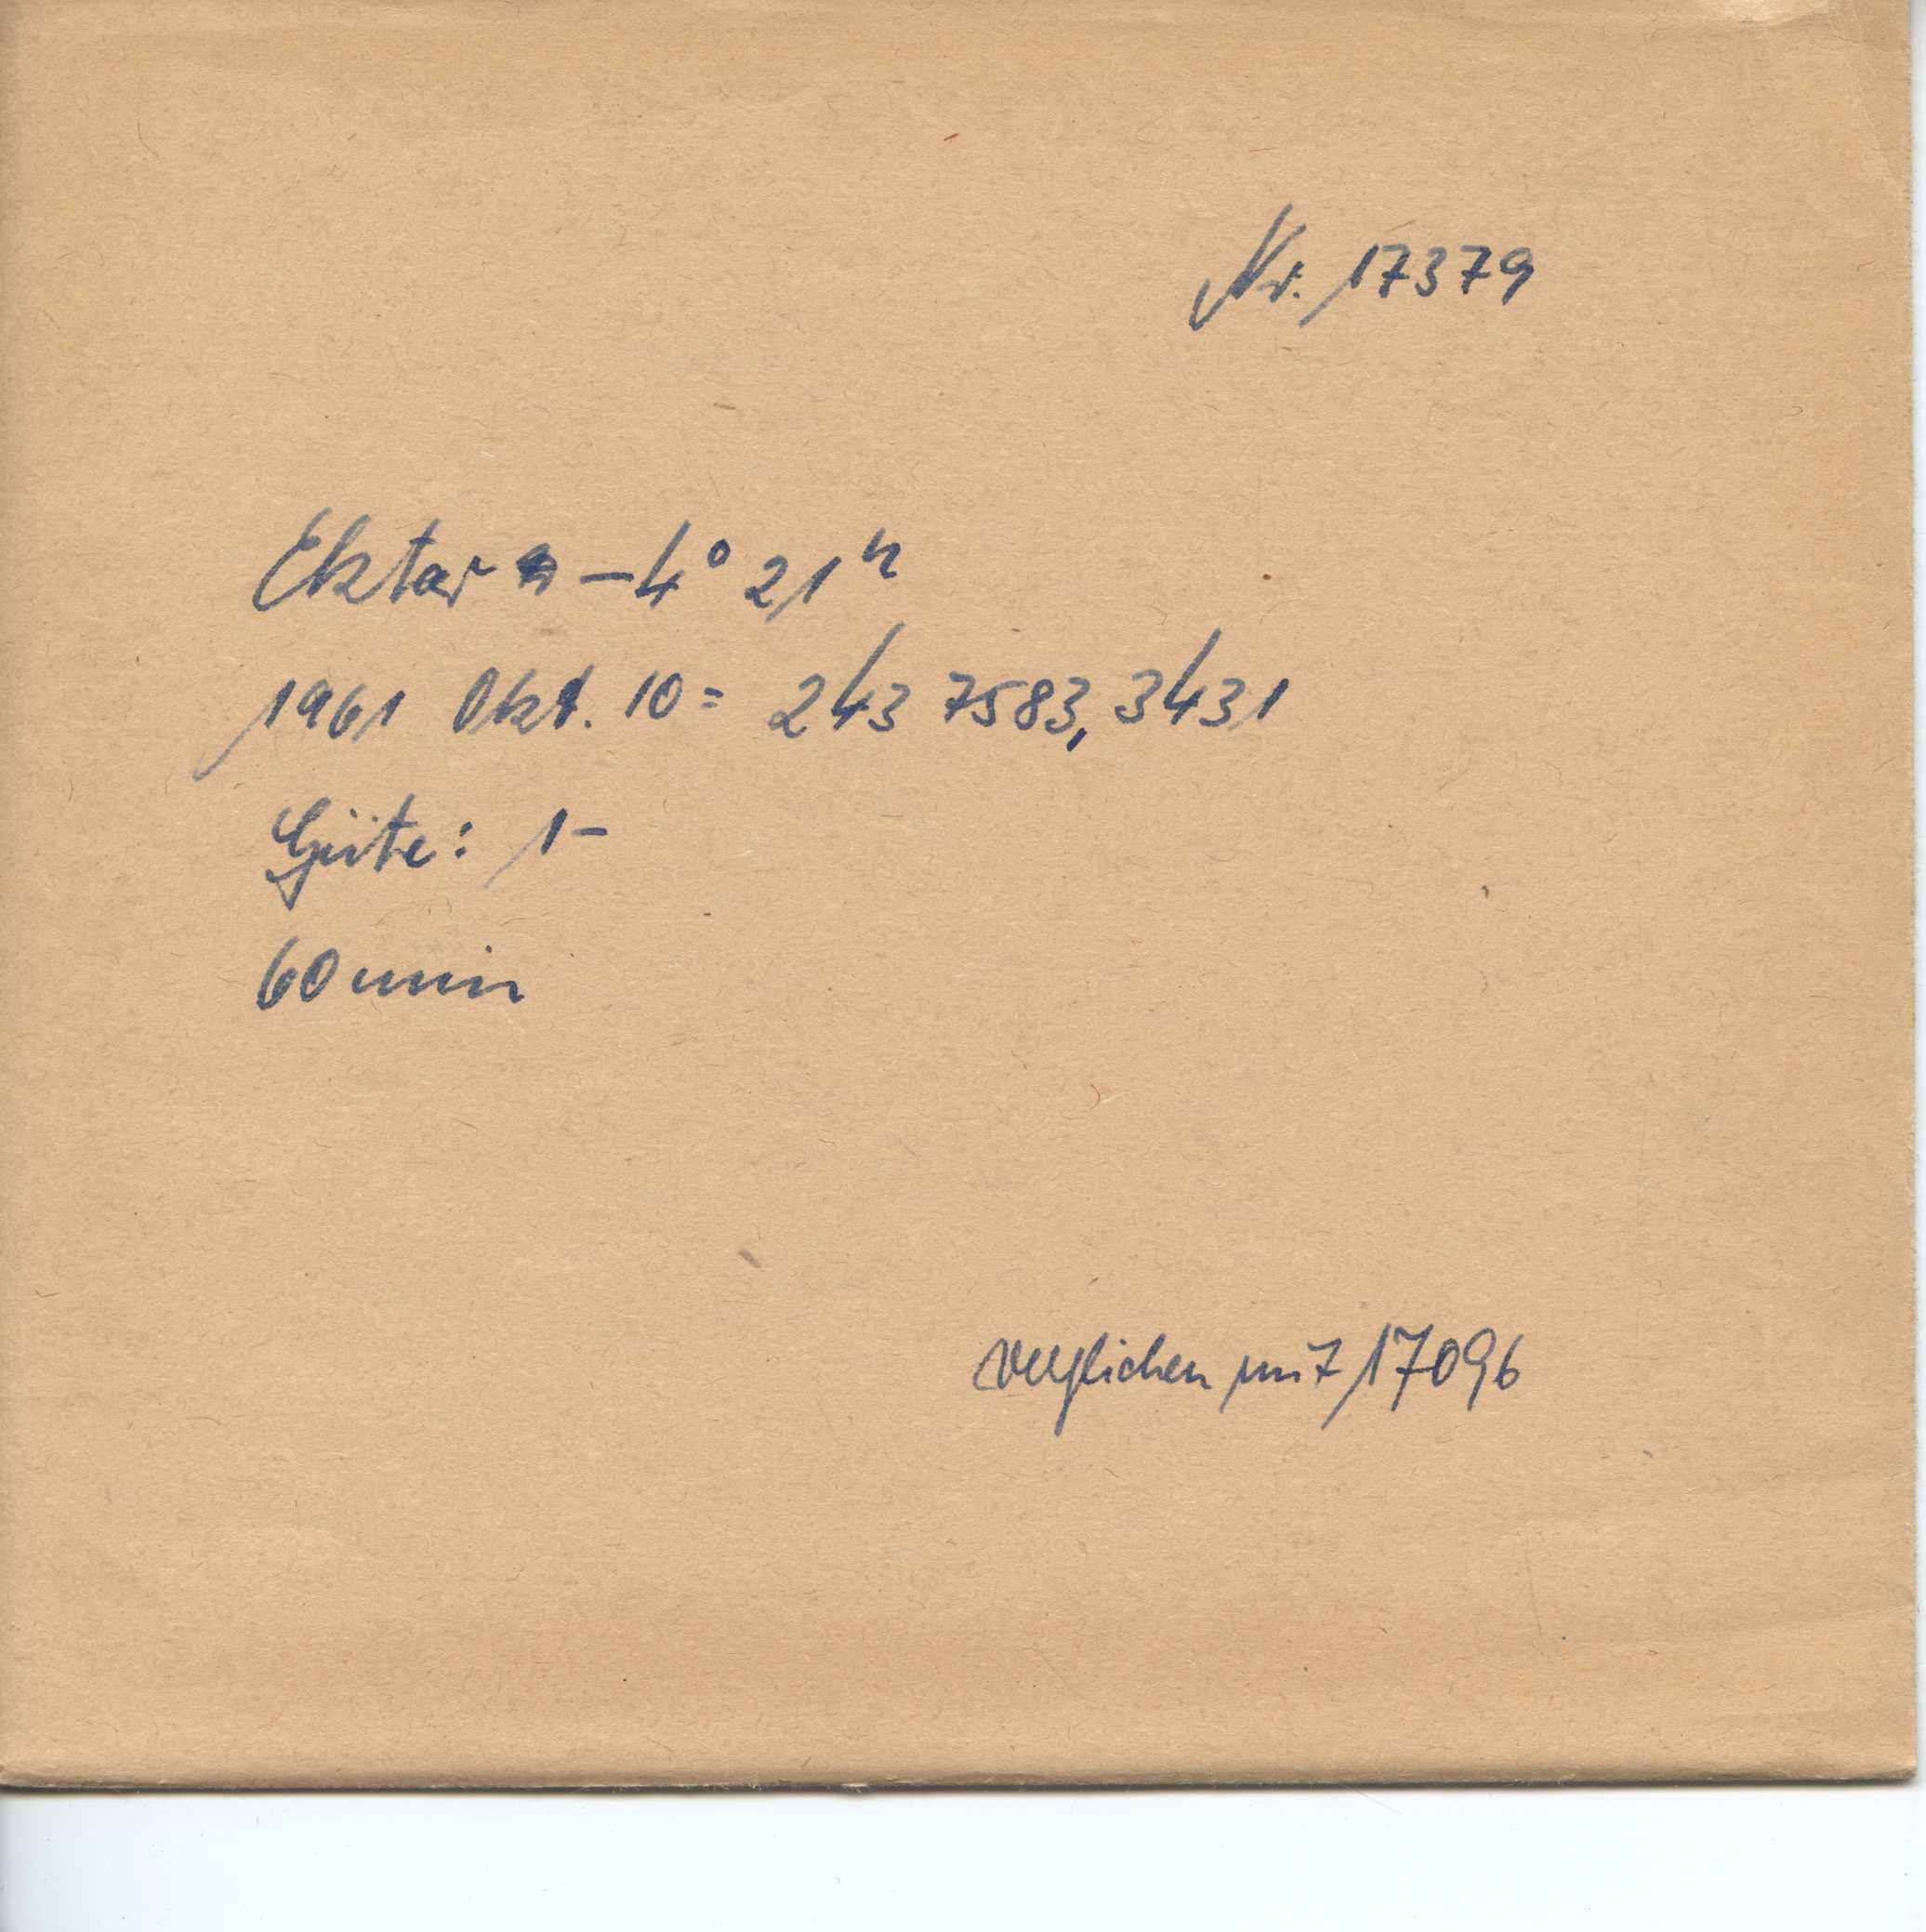 Nr. 17379
Ektar -4° 21h
1961 Okt. 10 = 243 7583,3431
Güte: 1-
60 min
verglichen mit 17096